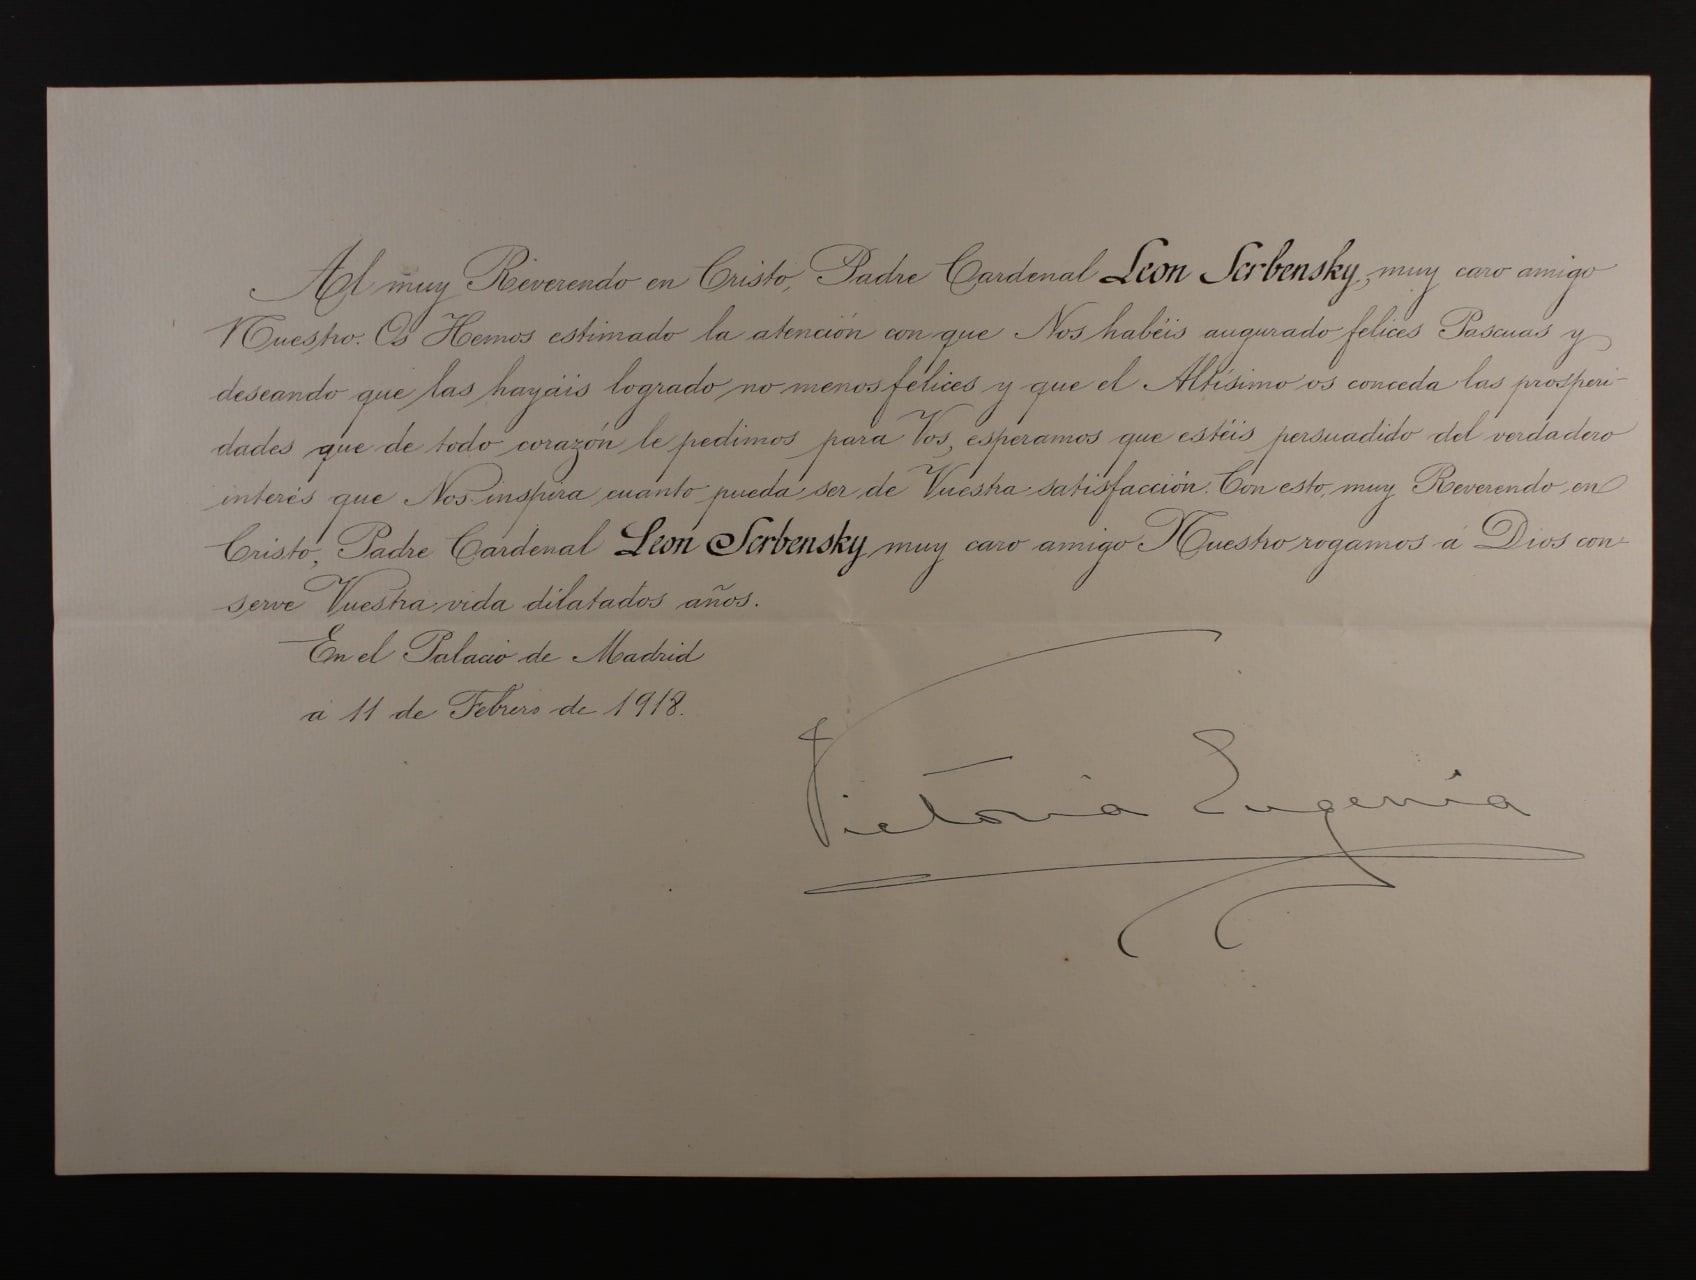 Al muy Reverendo en Cristo, Padre Cardenal Leon Scrbensky, muy caro amigo
Nuestro. Os Hemos estimado la atención con que Nos habéis augurado felices Pascuas y
deseando que las hayáis logrado no menos felices y que el Altísimo os conceda las prosperi-
dades que de todo corazón le pedimos para Vos, esperamos que estéis persuadido del verdadero
interés que Nos inspira cuanto pueda ser de Vuestra satisfacción. Con esto, muy Reverendo en
Cristo, Padre Cardenal Leon Scrbensky muy caro amigo Nuestro rogamos á Dios con-
serve Vuestra vida dilatados años.
En el Palacio de Madrid
á 11 de Febrero de 1918.
Victoria Eugenia